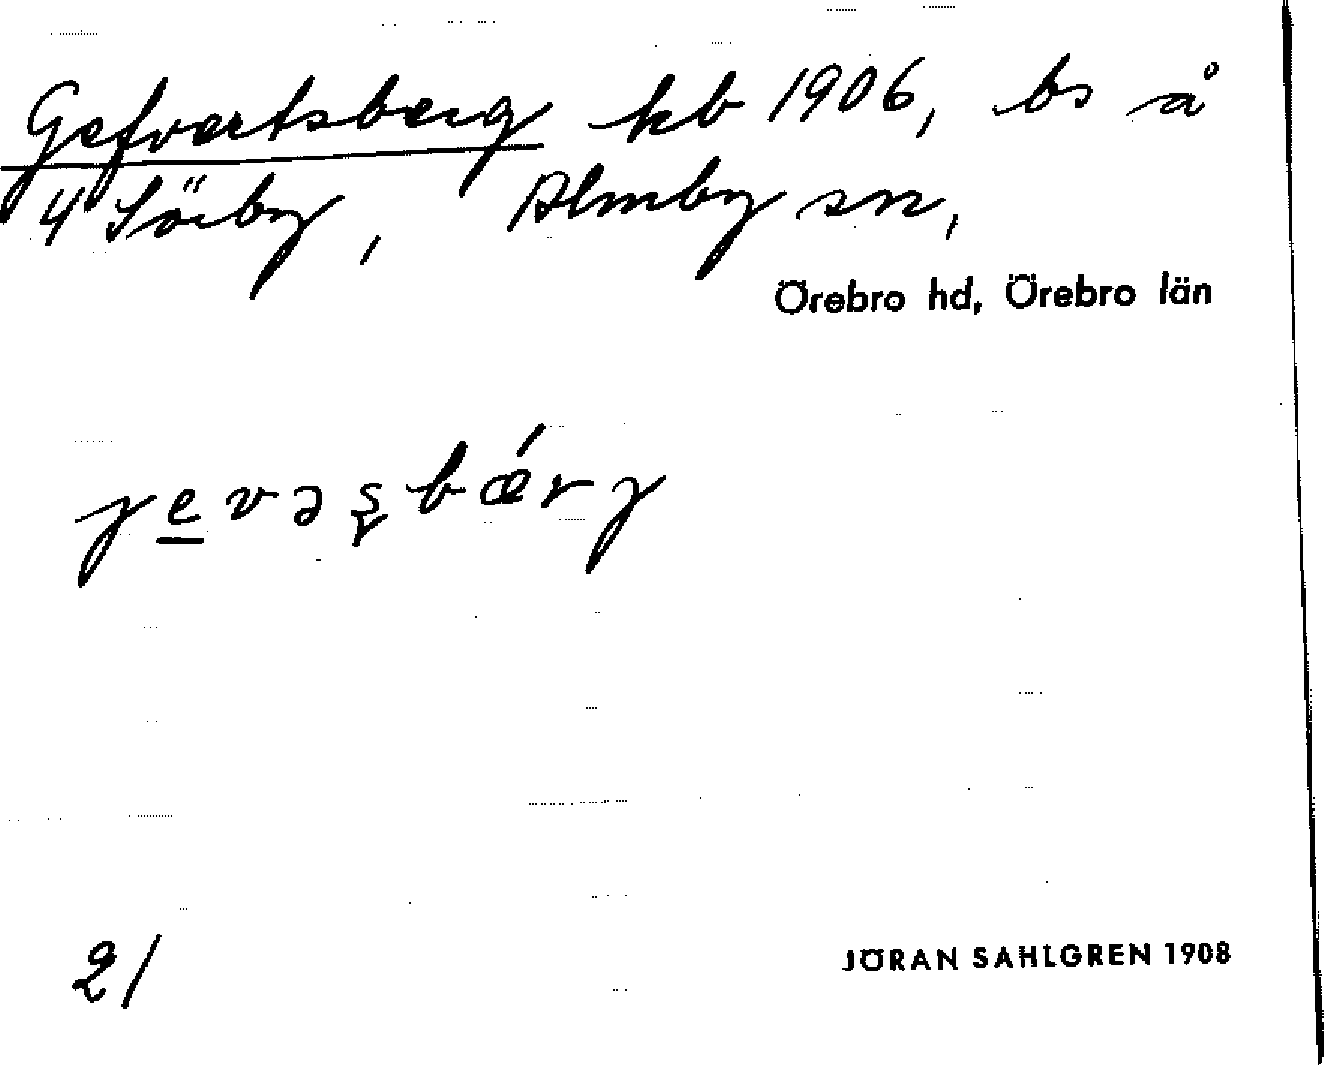 Gefvertsberg kb 1906, bs å
4 Sörby, Almby sn,
Örebro hd, Örebro län
JÖRAN SAHLGREN 1908